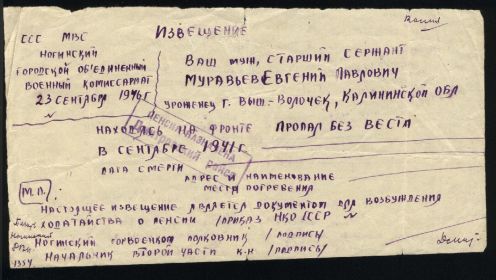 Копия
ИЗВЕЩЕНИЕ
ССС МВС
Ногинский
городской объединенный
военный комиссариат
23 сентября 1946 г
Ваш муж, старший сержант
Муравьев Евгений Павлович
уроженец г. Выш-Волочек, Калининской обл
находясь на фронте пропал без вести
в сентябре 1941 г
дата смерти
адрес и наименование
место погребения
М.П.
Настоящее извещение является документом для возбуждения
ходатайства о пенсии /приказ НКО СССР №
Ногинский горвоенком полковник /подпись/
Начальник второй части к-н /подпись/